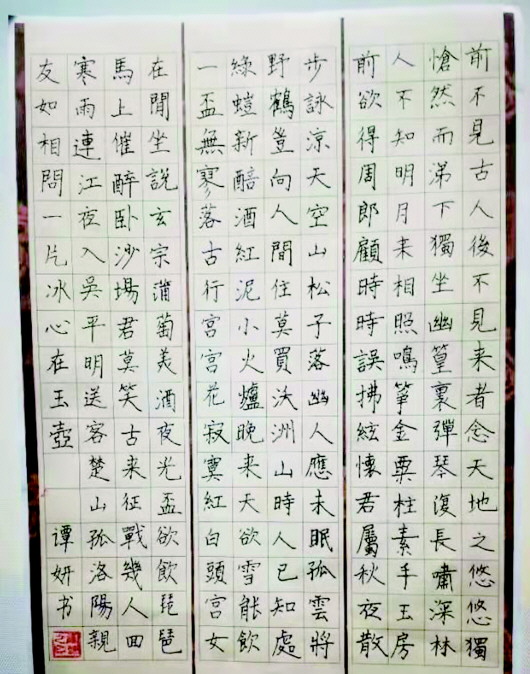 前不見古人後不見来者念天地之悠悠獨
愴然而涕下獨坐幽篁裏彈琴復長嘯深林
人不知明月来相照鳴箏金粟柱素手玉房
前欲得周郎顧時時誤拂絃懷君屬秋夜散
步詠涼天空山松子落幽人應未眠孤雲將
野鶴豈向人間住莫買沃洲山時人已知處
綠螘新醅酒紅泥小火爐晚来天欲雪能飲
一盃無寥落古行宮宮花寂寞紅白頭宮女
在閒坐說玄宗蒲萄美酒夜光盃欲飲琵琶
馬上催醉卧沙場君莫笑古来征戰幾人回
寒雨連江夜入吳平明送客楚山孤洛陽親
友如相問一片冰心在玉壺 谭妍书